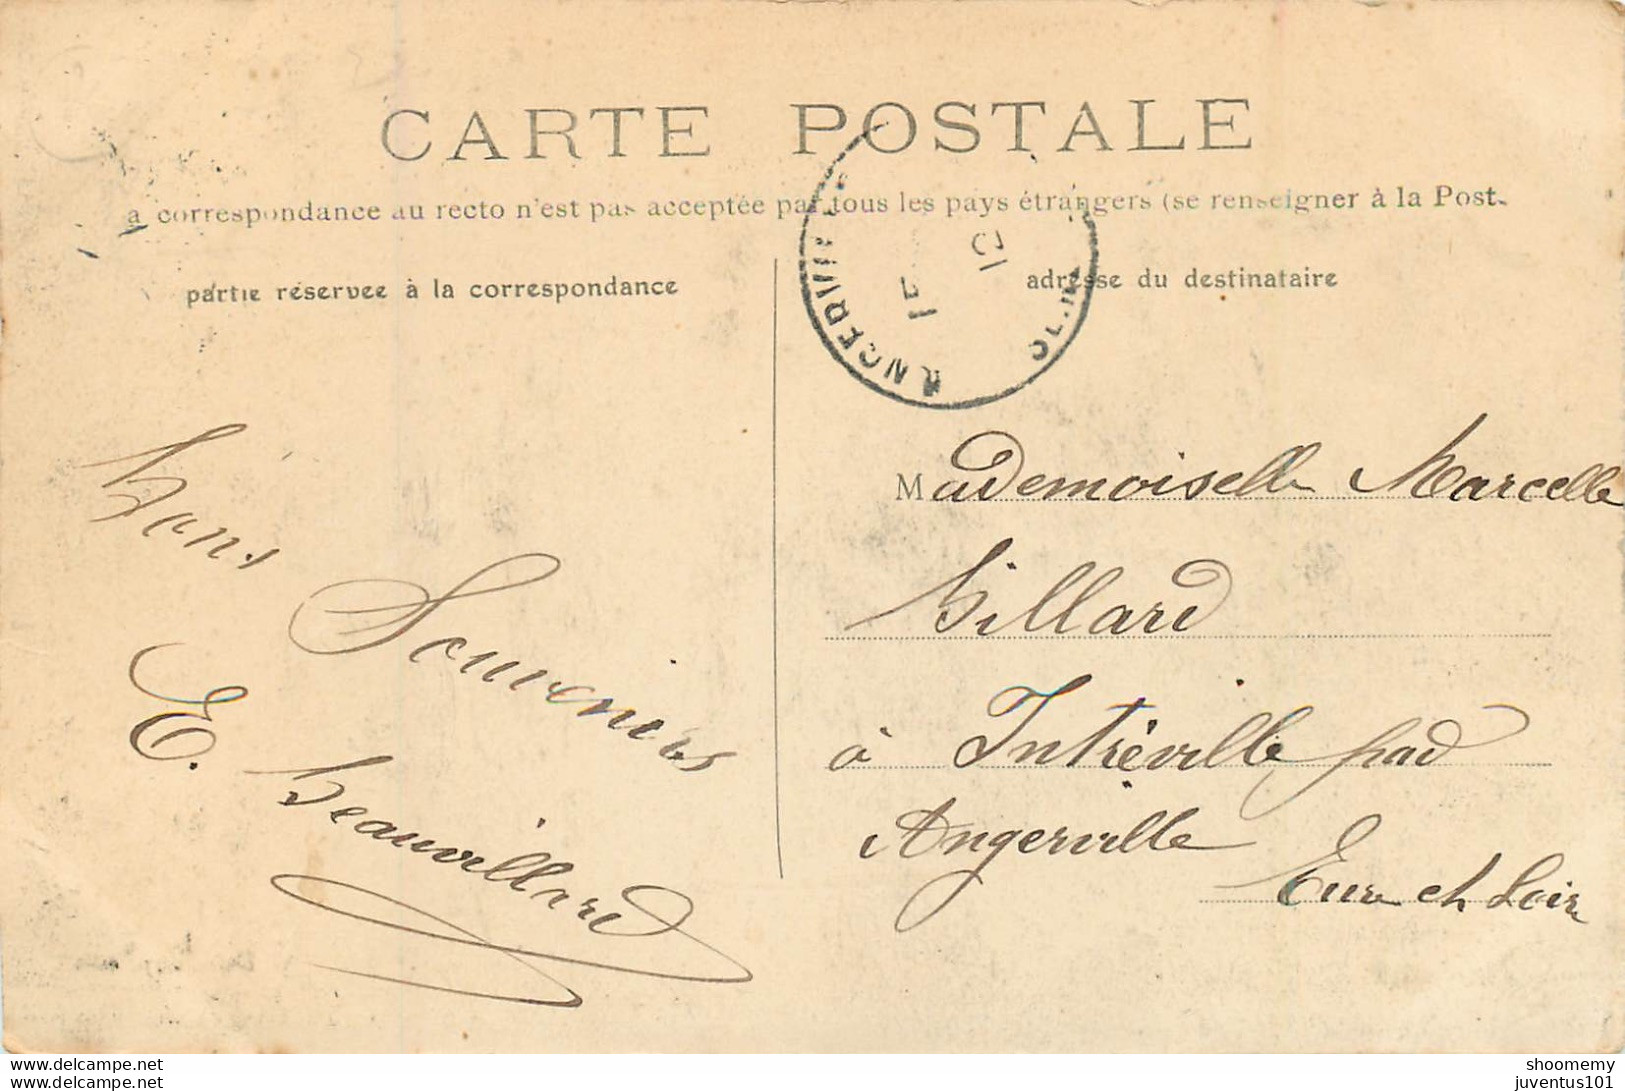 CARTE POSTALE
a correspondance au recto n'est pas acceptée par tous les pays étrangers (se renseigner à la Post.
partie réservée à la correspondance
adresse du destinataire
ANGERVIL
15
Bons
Souvenirs
E. Beauvillard
Mademoiselle Marcelle
Billard
à Intréville par
Angerville
Eure et Loir
www.delcampe.net
juventus101@
shoomemy
juventus101